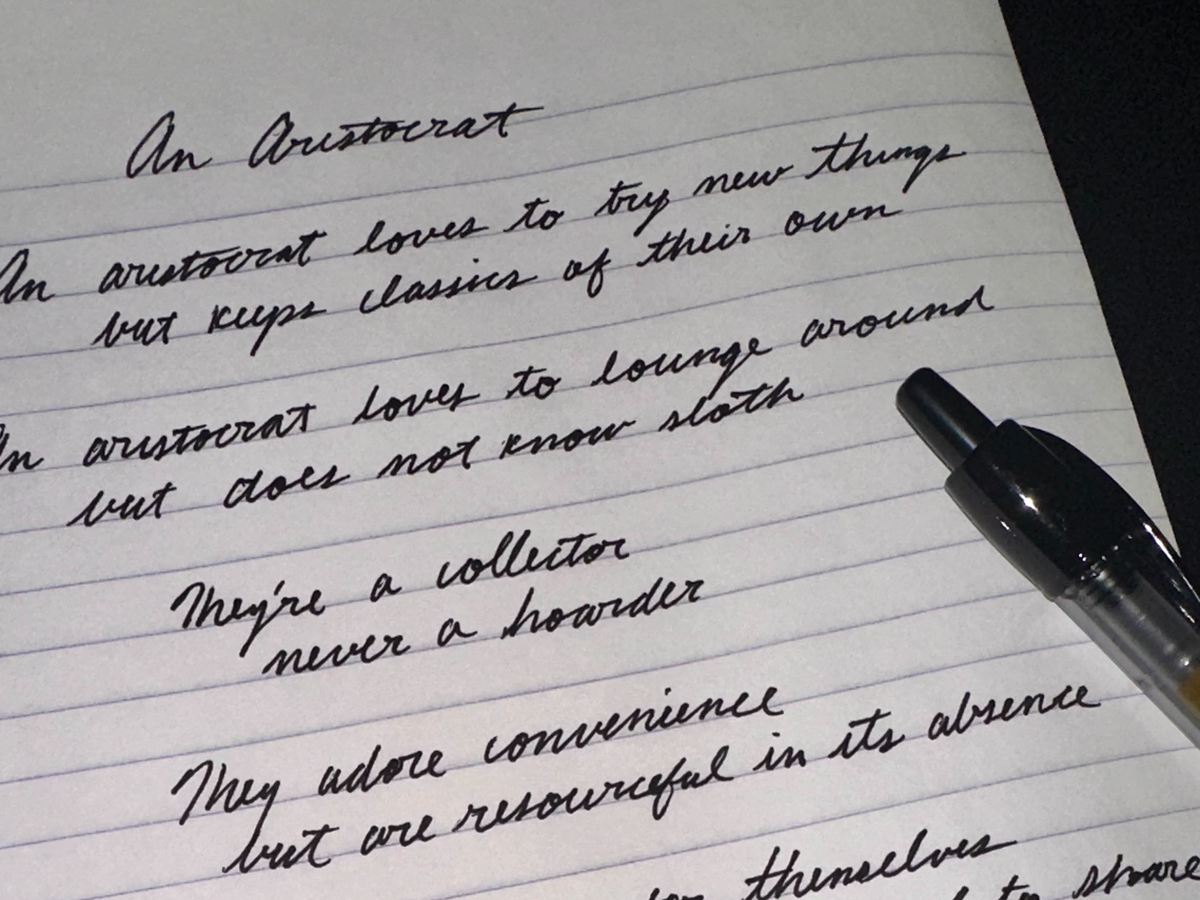 An Aristocrat
An aristocrat loves to try new things
but keeps classics of their own
An aristocrat loves to lounge around
but does not know sloth
They're a collector
never a hoarder
They adore convenience
but are resourceful in its absence
themselves
to share